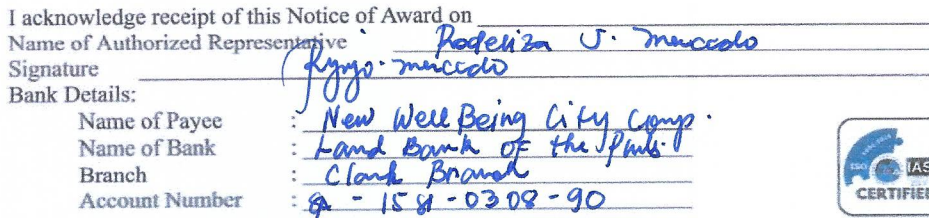 I acknowledge receipt of this Notice of Award on
Name of Authorized Representative Rodeliza J. Mercado
Signature Mercado
Bank Details:
Name of Payee : New Well Being City Comp.
Name of Bank : Land Bank of the Phils.
Branch : Clark Branch
Account Number : - 1581-0308-90
ISO
IAS
CERTIFIED